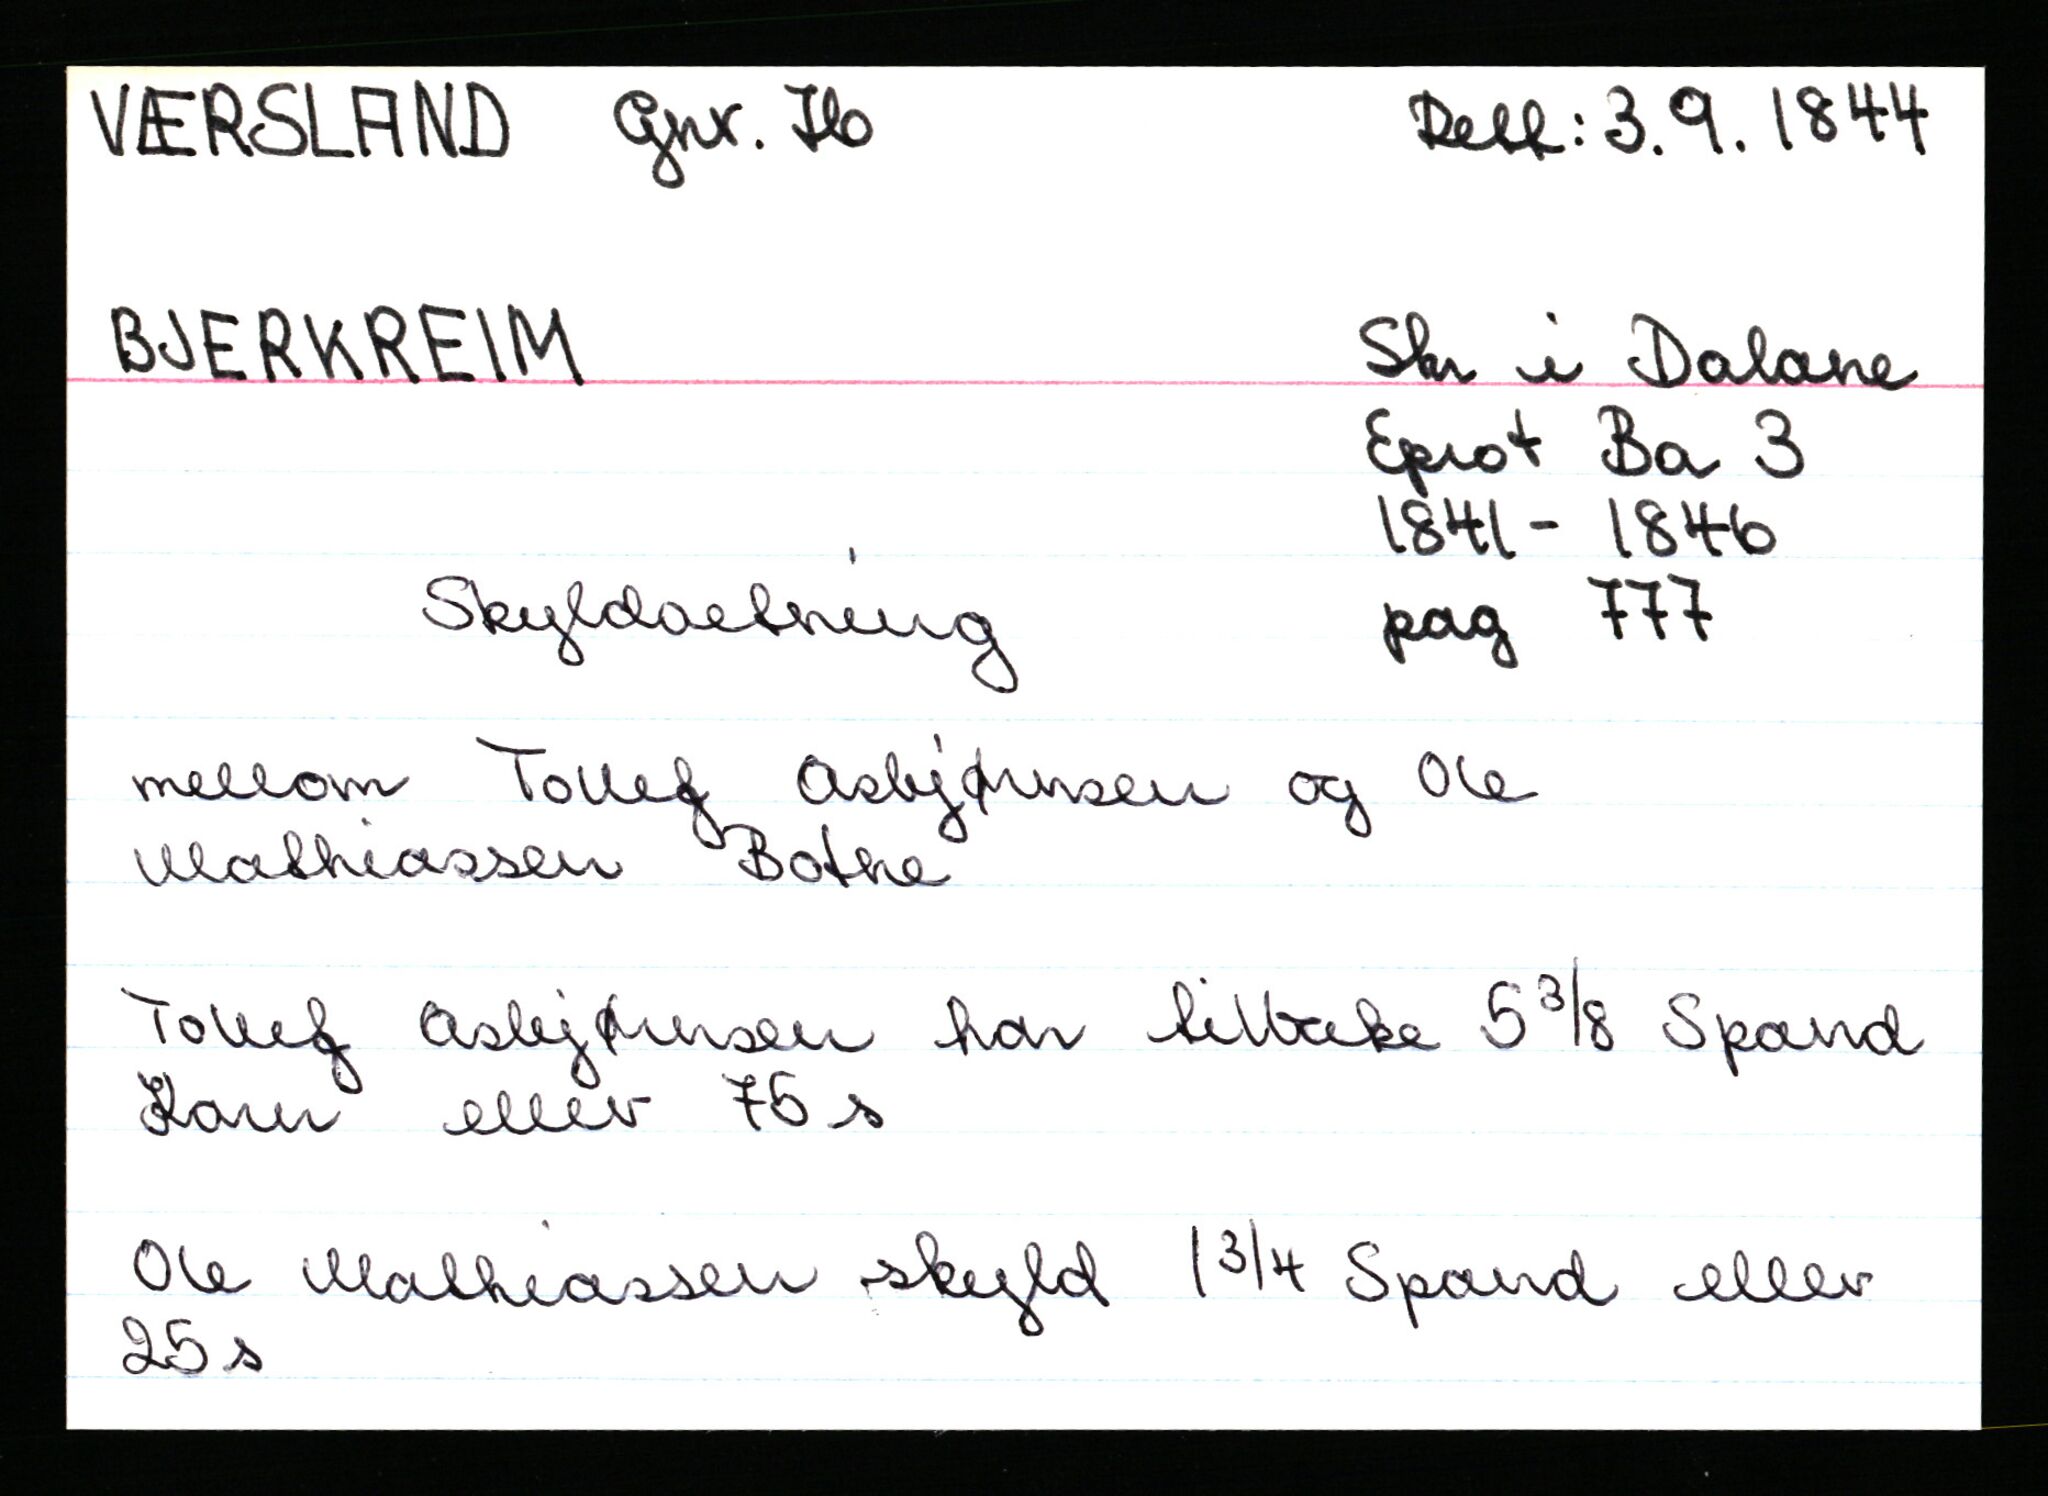 VÆRSLAND Gnr. 76 Dett: 3.9.1844
BJERKREIM Skr i Dalane
Eprot Ba 3
1841 - 1846
pag 777
Skyldsetning
mellom Tollef Asbjørnsen og Ole
Mathiassen Botne
Tollef Asbjørnsen har tilbake 5 3/8 Spand
Korn eller 75 s
Ole Mathiassen skyld 1 3/4 Spand eller
25 s